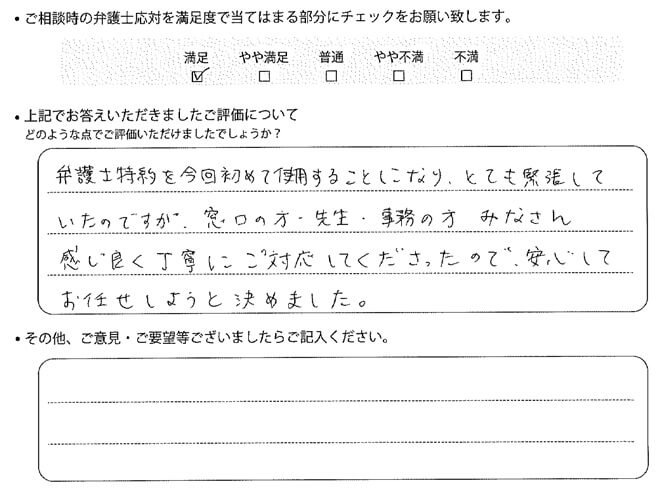 ・ご相談時の弁護士応対を満足度で当てはまる部分にチェックをお願い致します。
満足 やや満足 普通 やや不満 不満
☑ ☐ ☐ ☐ ☐
・上記でお答えいただきましたご評価について
どのような点でご評価いただけましたでしょうか？
弁護士特約を今回初めて使用することになり、とても緊張して
いたのですが、窓口の方・先生・事務の方 みなさん
感じ良く丁寧にご対応してくださったので、安心して
お任せしようと決めました。
・その他、ご意見・ご要望等ございましたらご記入ください。